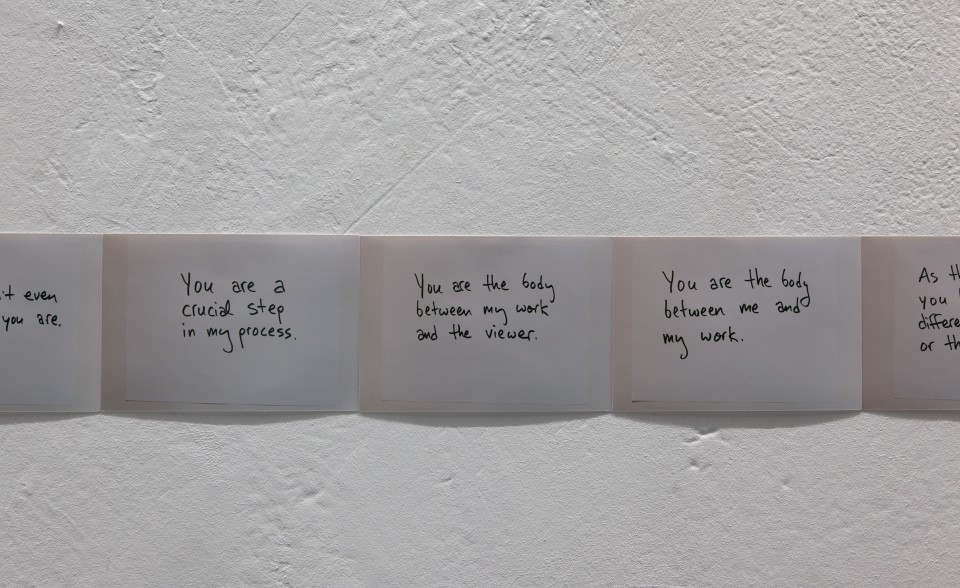 even
you are.
You are a
crucial step
in my process.
You are the body
between my work
and the viewer.
You are the body
between me and
my work.
As
you
or